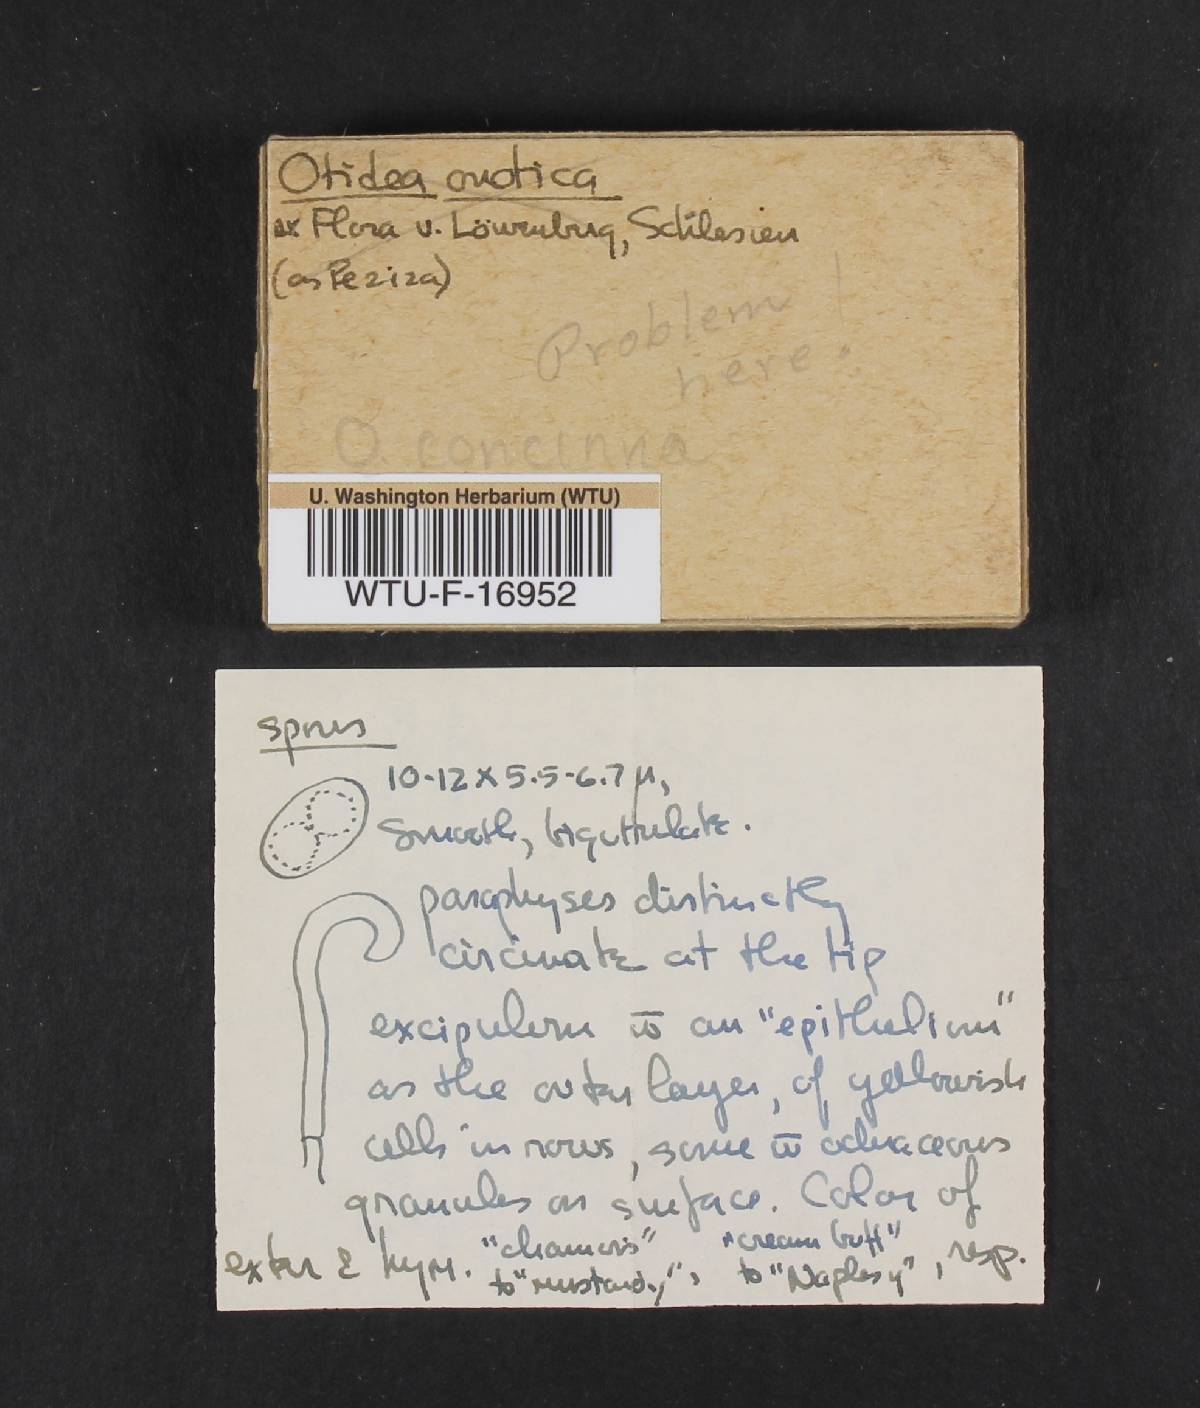 Otidea onotica
ex Flora v. Löwenburg, Schlesien
(as Peziza)
Problem
here!
O. concinna
U. Washington Herbarium (WTU)
WTU-F-16952
spores
10-12 x 5.5-6.7 µ,
Smooth, biguttulate.
paraphyses distinctly
circinate at the tip
excipulum w̅ an "epithelium"
as the outer layer, of yellowish
cells in rows, some w̅ ochraceous
granules on surface. Color of
exter & hym. "chamois" "cream buff"
to "mustard y", to "Naples y", resp.